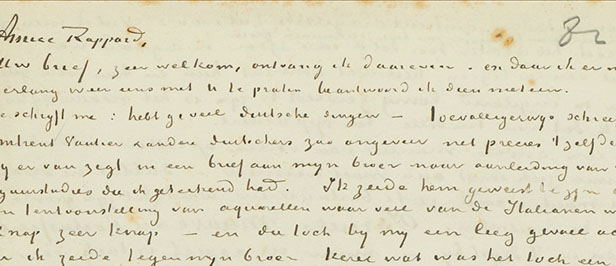 Amice Rappard,
82
Uw brief, zeer welkom, ontving ik daareven – en daar ik er n
verlang weer eens met U te praten beantwoord ik dien meteen.
e schrijft me: hebt ge veel duitsche singen – Toevalligerwijs schree
omtrent Vautier & andere duitschers zoo ongeveer net precies 't zelfde
ij er van zegt in een brief aan mijn broer naar aanleiding van
guurstudies die ik geteekend had. Ik zeide hem geweest te zijn
n tentoonstelling van aquarellen waar veel van de Italianen w
Knap zeer knap – en die toch by my een leeg gevoel ac
ik zeide tegen mijn broer Kerel wat was het toch een